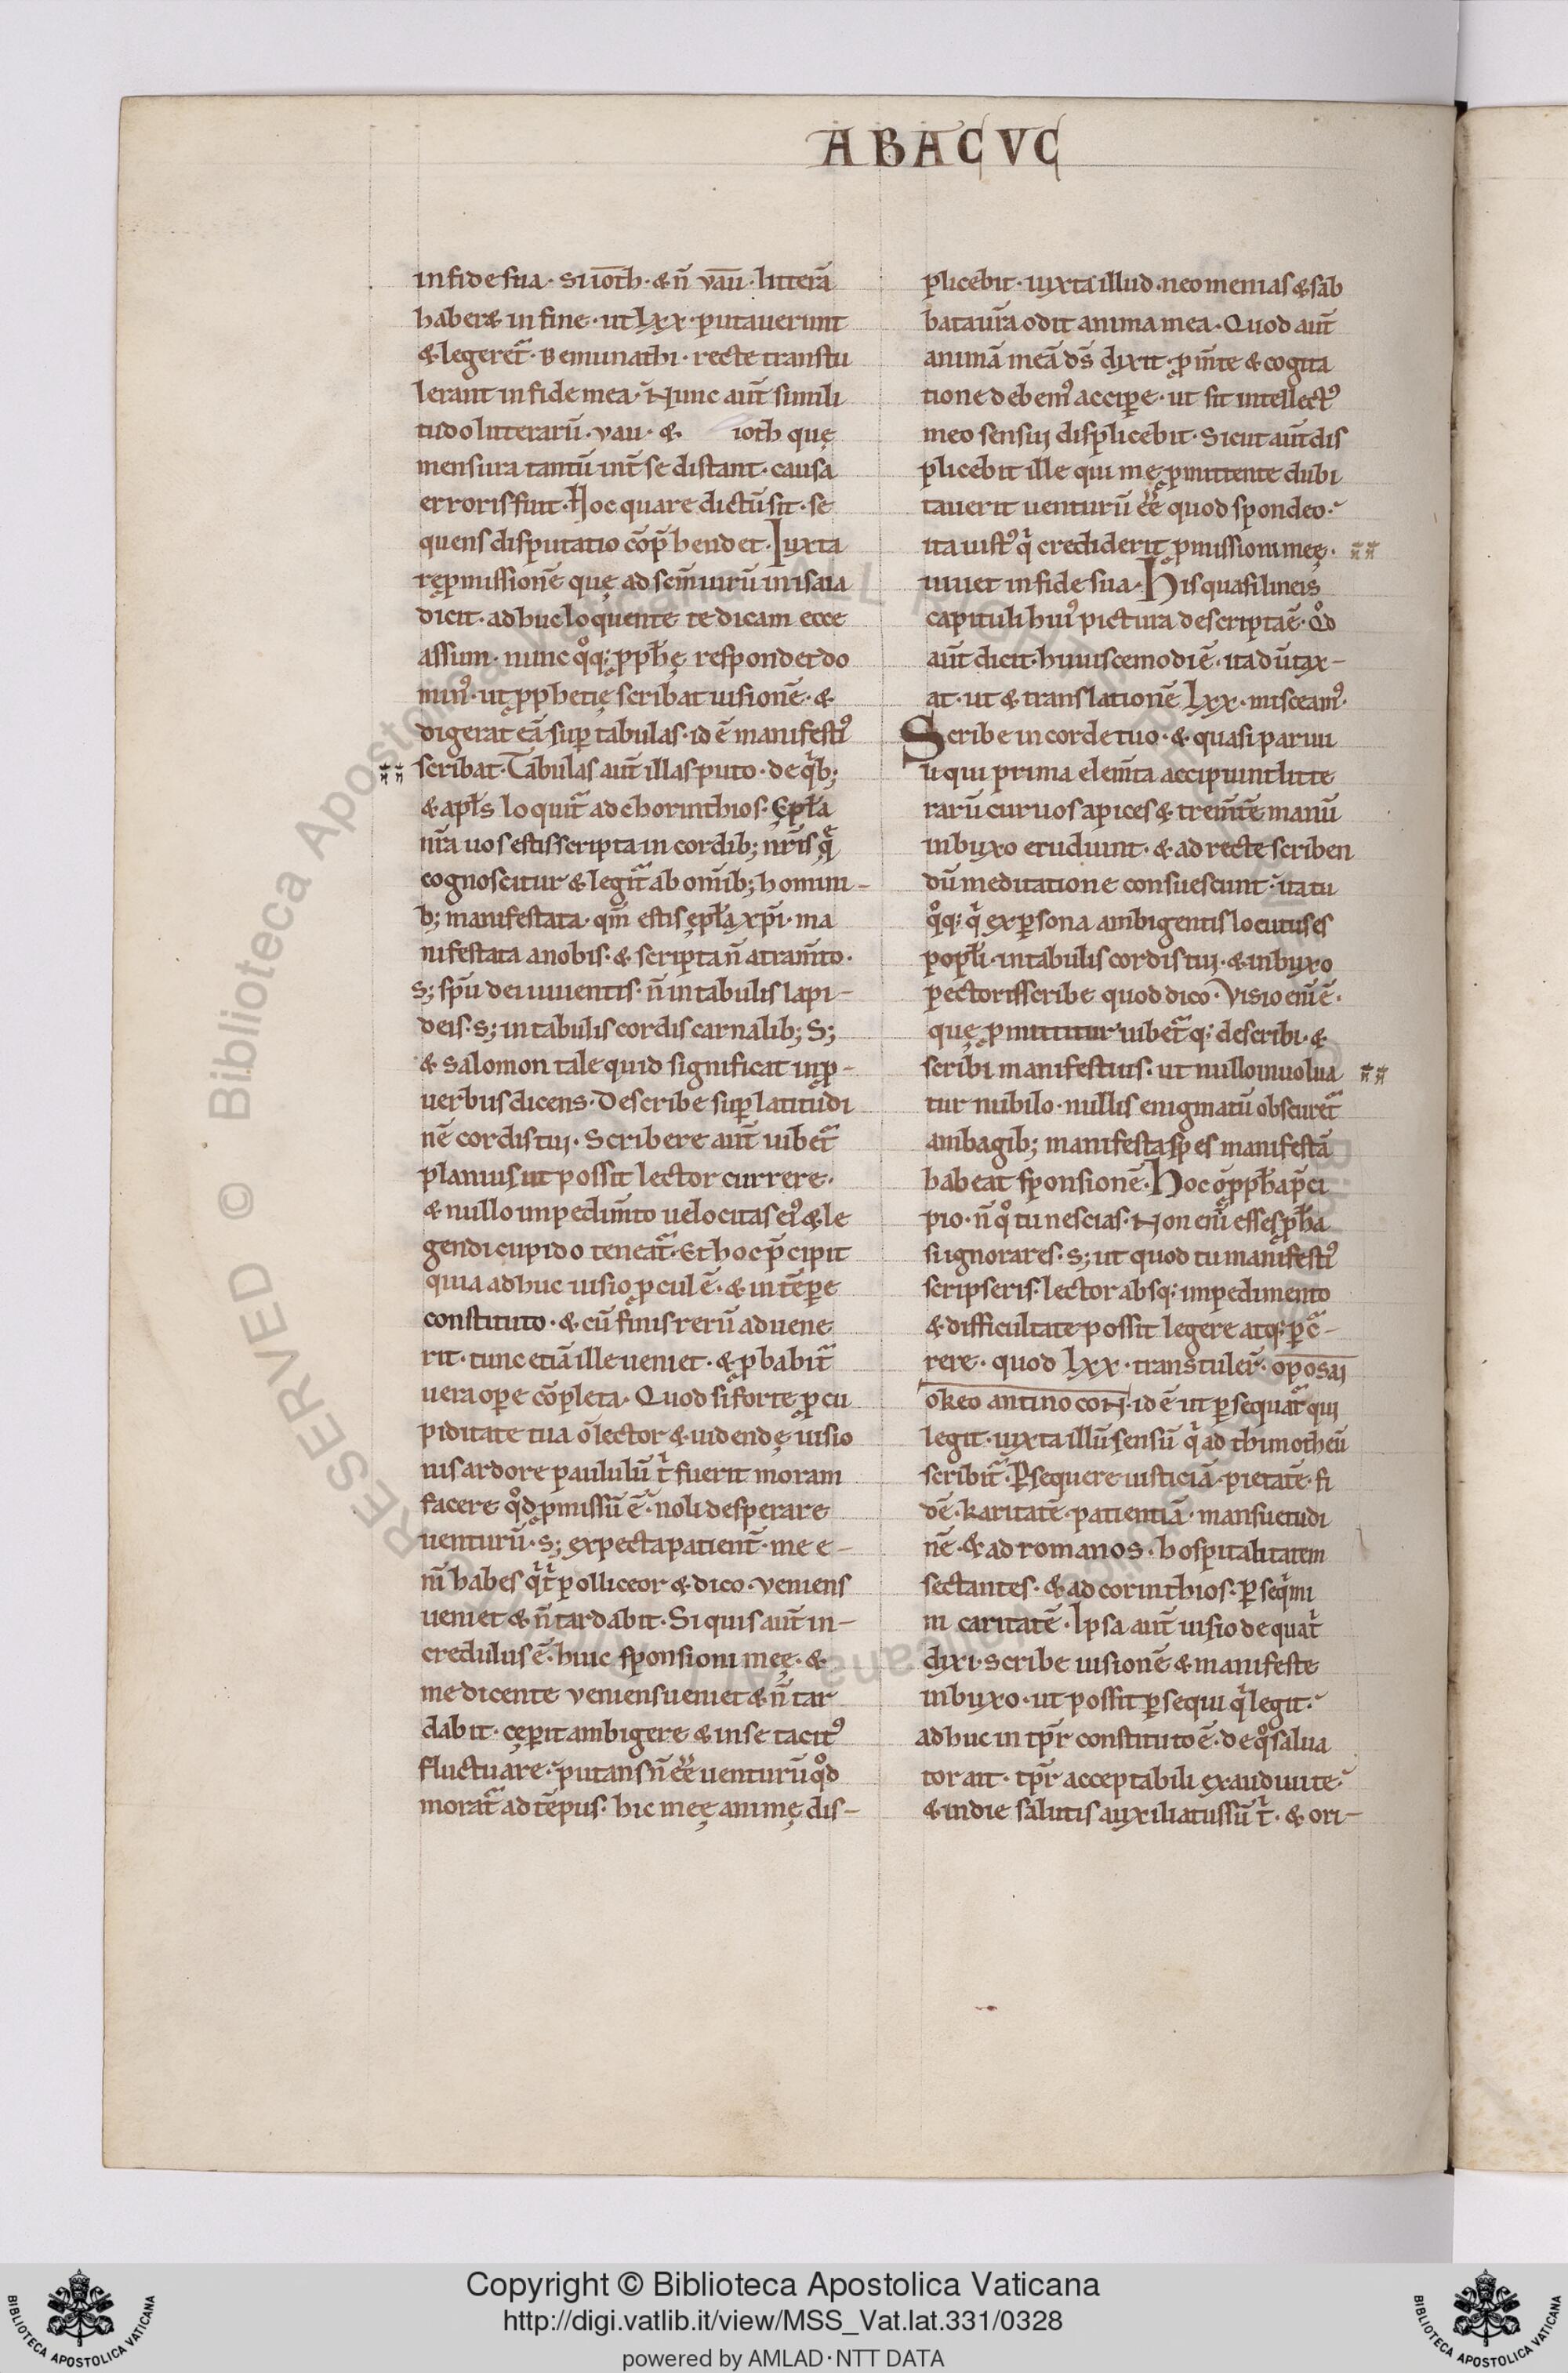 ABACVC
in fide sua· Si ioth· & n̄ vau· litterā
haberæ in fine· ut lxx· putauerunt
& legeret̄· Bemunathi· recte transtu
lerant in fide mea· Nunc aut̄ simili
tudo litterarū· vau· & ioth quę
mensura tantū int̄ se distant· causa
erroris fuit· Hoc quare dictū sit· se
quens disputatio cōp̄hendet· Iuxta
rępmissionē quę ad sem̄ uirū in isaia
dicit· adhuc loquente te dicam ecce
assum· nunc qͦq; ꝓph̄ę respondet do
minꝰ· ut ꝓphetię scribat uisionē· &
digerat eā suꝑ tabulas· id ē manifestiꝰ
scribat· Tabulas aut̄ illas puto· de qͥb;
& apl̄s loquit̄ ad chorinthios· Ępl̄a
nr̄a uos estis scripta in cordib; nr̄is q̄
cognoscitur & legit̄ ab om̄ib; homini-
b; manifestata· qm̄ estis ępl̄a xp̄i· ma
nifestata a nobis· & scripta n̄ atram̄to·
s; sp̄u dei uiuentis· n̄ in tabulis lapi-
deis· s; in tabulis cordis carnalib; S;
& salomon tale quid significat in ꝓ-
uerbiis dicens· Describe suꝑ latitudi
nē cordis tui· Scribere aut̄ iubet̄
planius ut possit lector currere·
& nullo impedim̄to uelocitas eiꝰ & le
gendi cupido teneat̄· Et hoc p̄cipit
quia adhuc uisio ꝓcul ē· & in tēꝑe
constituto· & cū finis rerū aduene
rit· tunc etiā ille ueniet· & ꝓbabit̄
uera oꝑe cōpleta· Quod si forte ꝓ cu
piditate tua o lector & uidendę uisio
nis ardore paululū tͥ fuerit moram
facere qͦd ꝓmissū ē· noli desperare
uenturū· s; expecta patient̄· me e-
ni̅ habes qͥ tͥ polliceor & dico· veniens
ueniet & n̄ tardabit· Si quis aut̄ in-
credulus ē· huic sponsioni meę· &
me dicente veniens ueniet & n̄ tar
dabit· cęꝑit ambigere & in se tacitꝰ
fluctuare· putans n̄ ēē uenturū qͦd
morat̄ ad tēpus· hic meę animę dis-
plicebit· iuxta illud· neomenias & sab
bata ur̄a odit anima mea· Quod aut̄
animā meā d̄s dixit· ꝓ m̄te & cogita
tione debemꝰ acciꝑe· ut sit intellectꝰ
meo sensui displicebit· Sicut aut̄ dis
plicebit ille qui me ꝓmittente dubi
tauerit uenturū ēē quod spondeo·
ita iustꝰ qͥ crediderit ꝓmissioni meę·
uiuet in fide sua· His quasi lineis
capituli huiꝰ pictura descripta ē· Qͦd
aut̄ dicit· huiuscemodi ē· ita dūtax-
at· ut & translationē lxx· misceamꝰ·
Scribe in corde tuo· & quasi paruu
li qui prima elem̄ta accipiunt litte
rarū curuos apices & trem̄tē manū
in buxo erudiunt· & ad recte scriben
dū meditatione consuescunt· ita tu
qͦq; qͥ ex ꝑsona ambigentis locutus es
popl̄i· in tabulis cordis tui· & in buxo
pectoris scribe quod dico· Visio eni̅ ē·
quę ꝓmittitur iubet̄q; describi· &
scribi manifestius· ut nullo inuolua
tur nubilo· nullis enigmatū obscuret̄
ambagib; manifesta spes manifestā
habeat sponsionē· Hoc o ꝓph̄a p̄ci
pio· n̄ qͦ tu nescias· Non eni̅ esses ꝓph̄a
si ignorares· s; ut quod tu manifestiꝰ
scripseris· lector absq; impedimento
& difficultate possit legere atq; ꝑc̄-
rere· quod lxx· transtuler̄· oposai
okeo antinocon· id ē ut ꝑsequat̄ qui
legit· iuxta illū sensū qͥ ad thimotheū
scribit̄· Ꝑsequere iusticiā· pietatē· fi
dē· karitatē· patientiā· mansuetudi
nē· & ad romanos· hospitalitatem
sectantes· & ad corinthios· ꝑseqͥmi
ni caritatē· Ipsa aut̄ uisio de qua tͥ
dixi· scribe uisionē & manifeste
in buxo· ut possit ꝑsequi qͥ legit·
adhuc in tp̄r constituto ē· de qͦ salua
tor ait· tp̄r acceptabili exaudiui te·
& in die salutis auxiliatus sū tͥ· & ori-
Copyright © Biblioteca Apostolica Vaticana
http://digi.vatlib.it/view/MSS_Vat.lat.331/0328
powered by AMLAD·NTT DATA